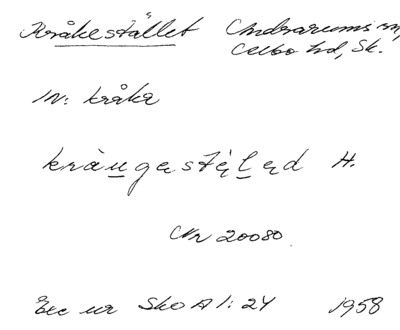 Kråkestället Andrarums sn,
Albo hd, Sk.
IN: kråka
kràu̲gęstę̀l̲ęd H.
Nr 20080.
Exc ur SkOA 1:24 1958